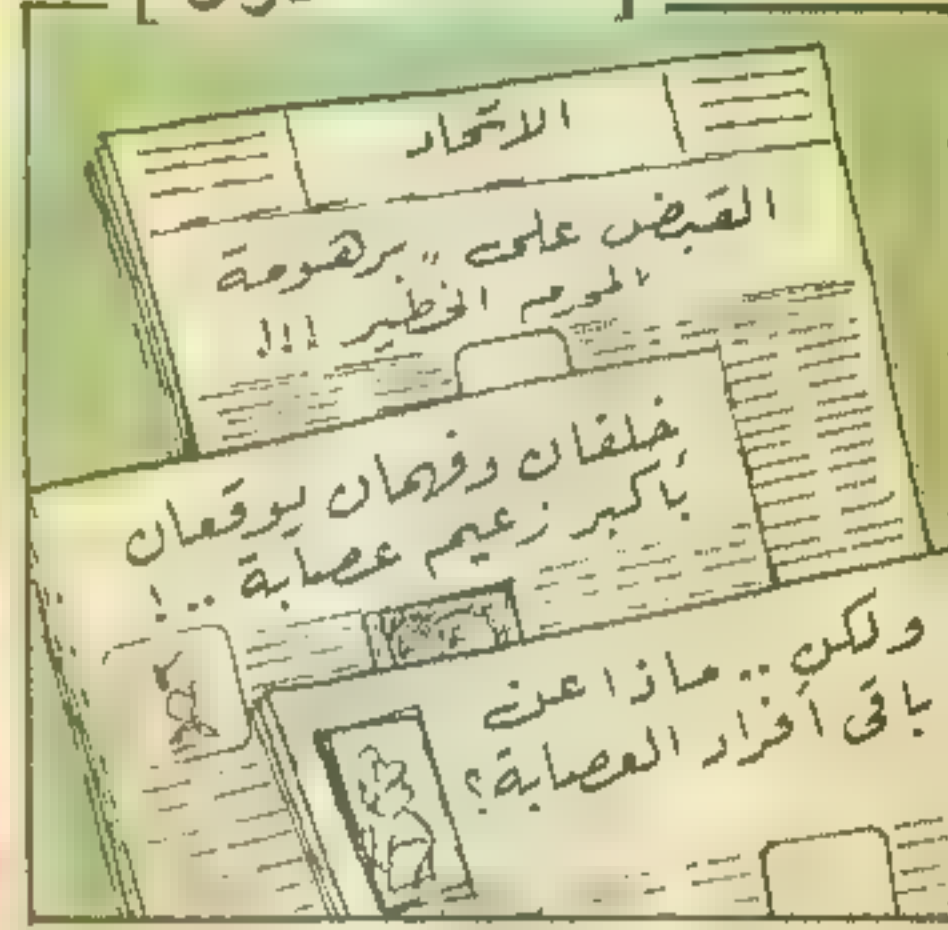 الاتحاد
القبض على „برهومة
المجرم الخطير !!!
خلفان وفهمان يوقعان
بأكبر زعيم عصابة ..!
ولكن .. ماذا عن
باقي أفراد العصابة؟